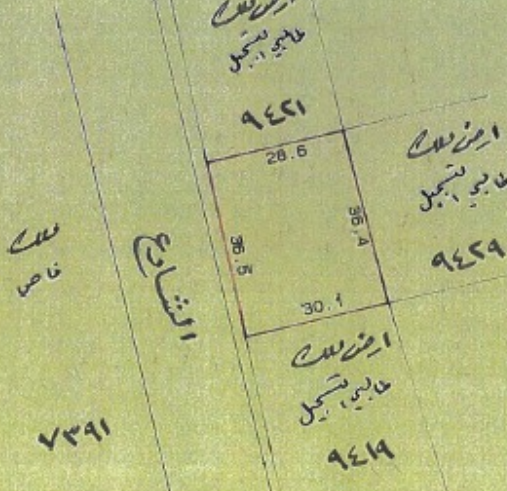 ارض ملك
طالبي التسجيل
٩٤٢١
28.6
ارض ملك
طالبي التسجيل
٩٤٢٩
36.4
36.5
30.1
ملك
خاص
الشارع
ارض ملك
طالبي التسجيل
٩٤١٩
٧٣٩١